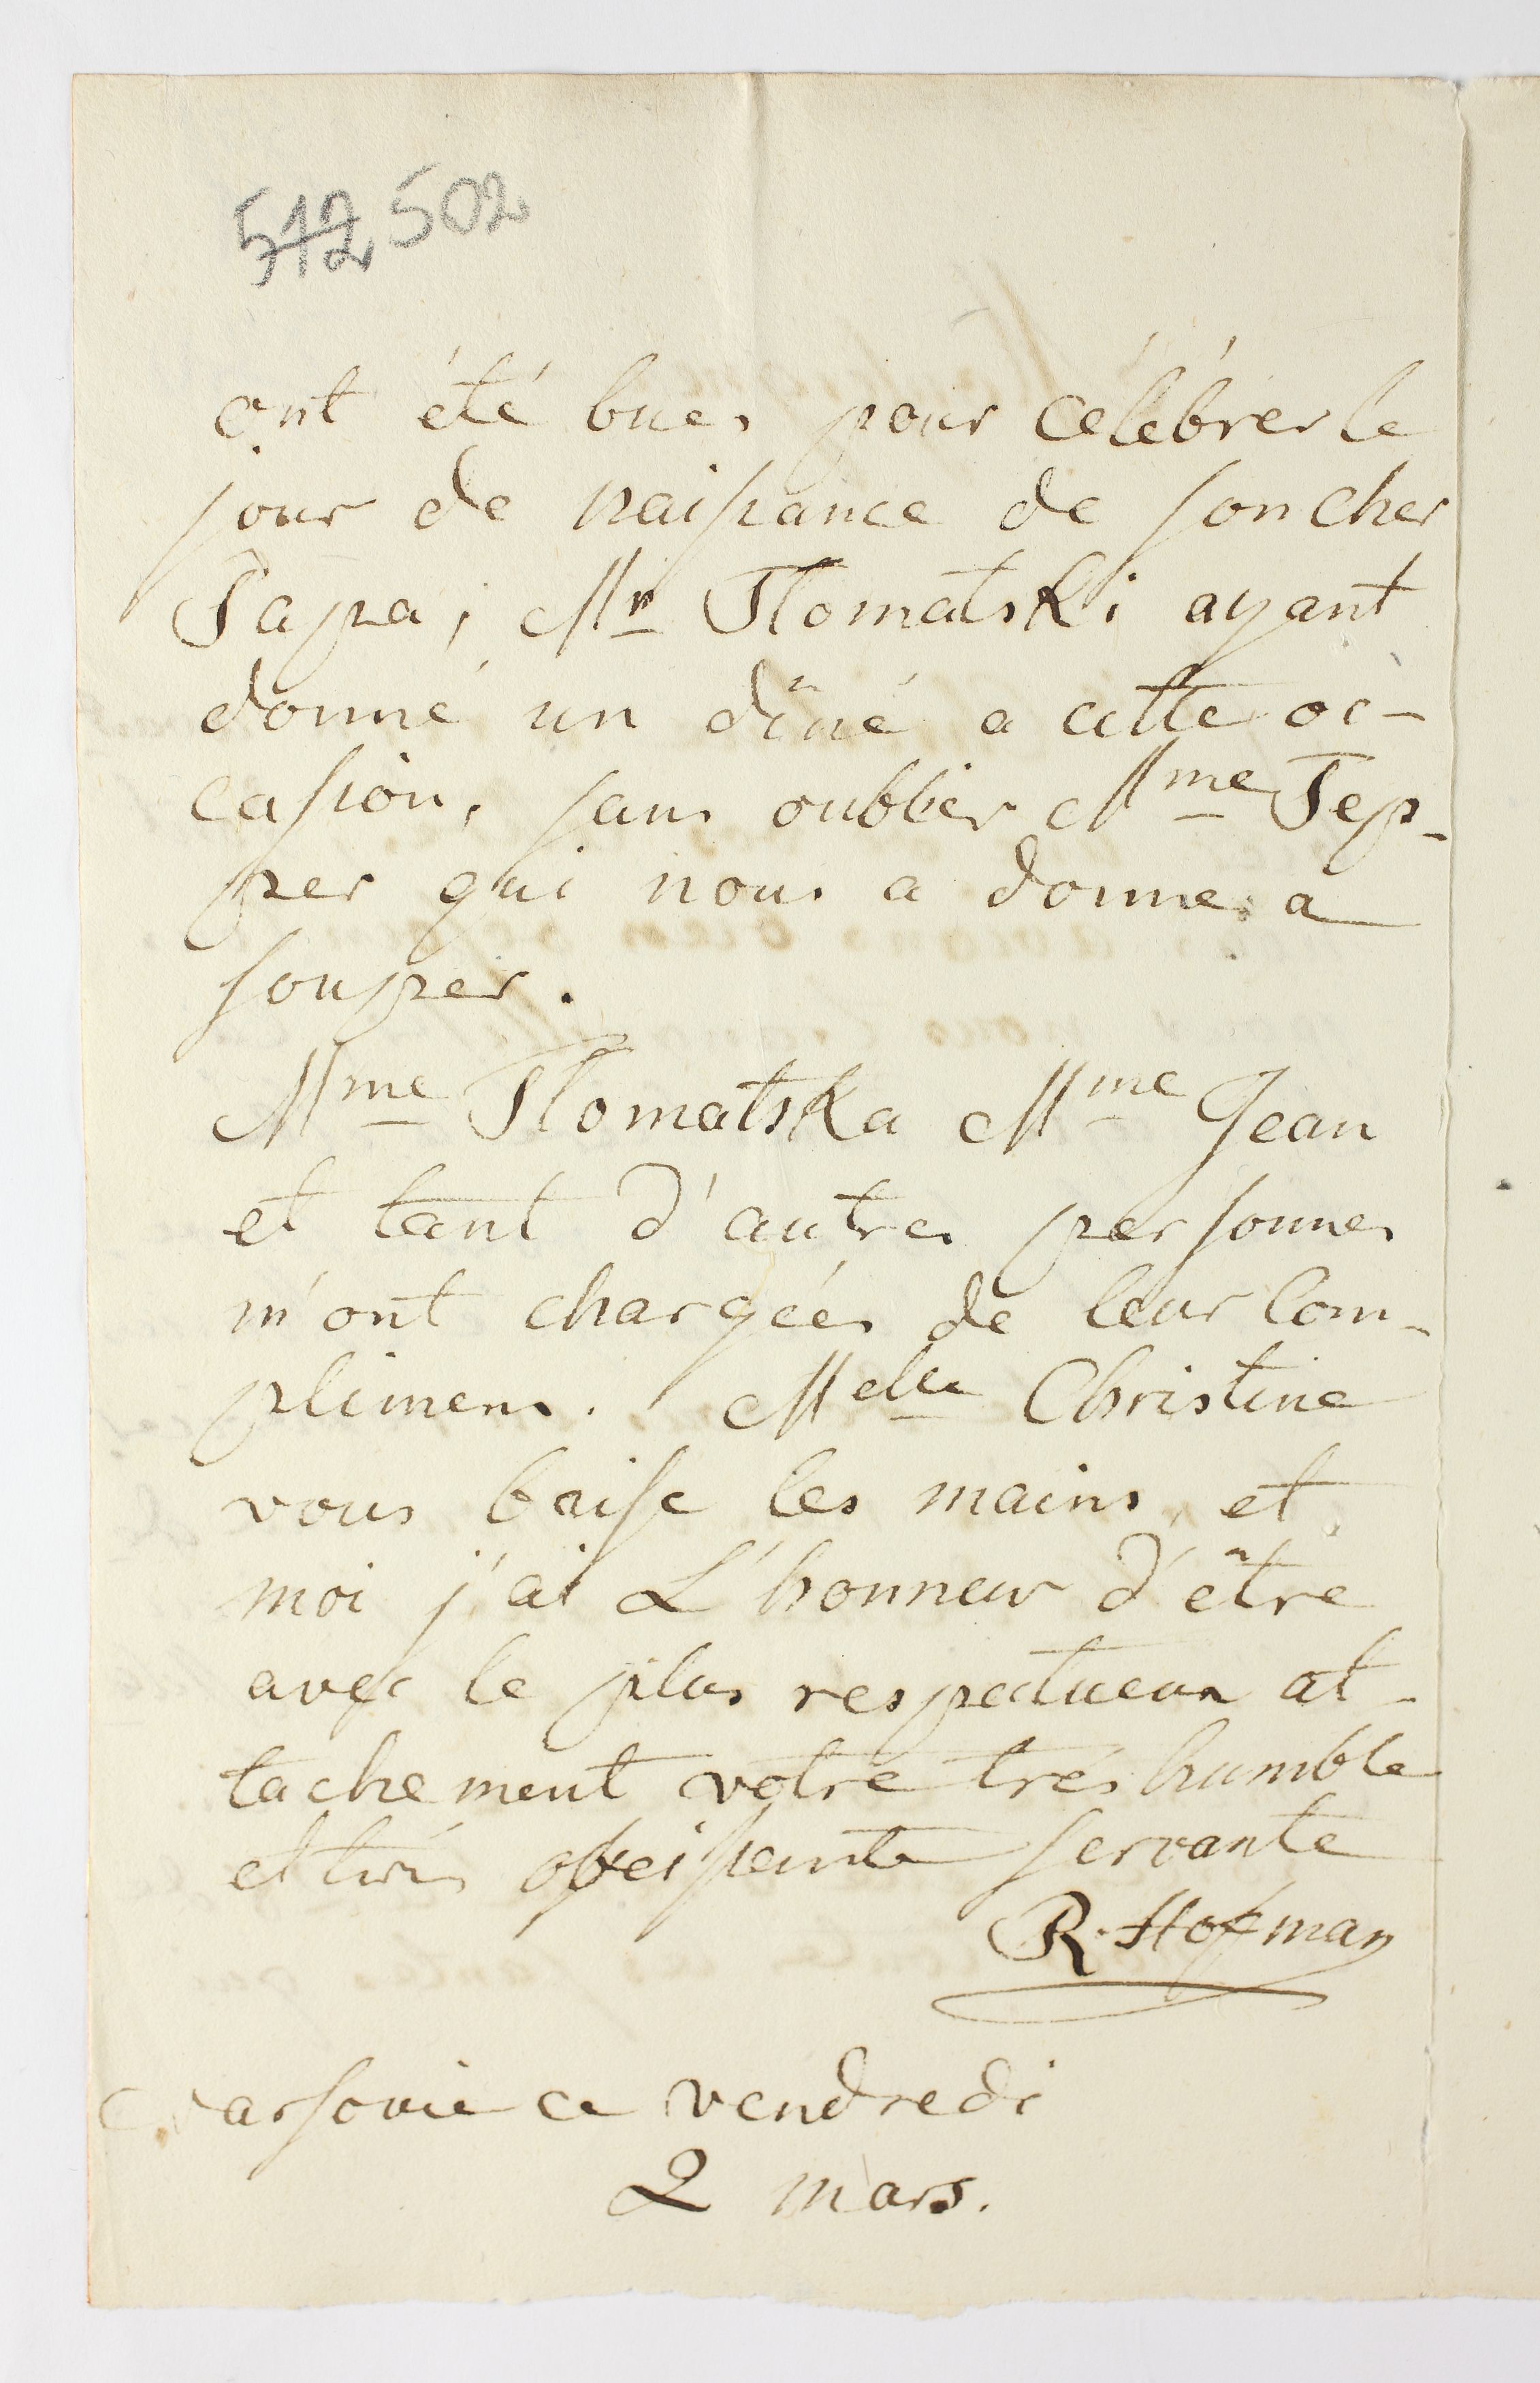 512 502
ont été bues pour célébrer le
jour de naissance de son cher
Papa, Mr Tlomatski ayant
donné un dîné a cette oc-
casion, sans oublier Mme Tep-
per qui nous a donné a
souper.
Mme Tlomatska Mme Jean
et tant d'autres personnes
m'ont chargées de leur Com-
plimens. Melle Christine
vous baise les mains, et
moi j'ai L'honneur d'être
avec le plus respectueux at-
tachement votre très humble
et très obeissante servante
R. Hofman
Varsovie ce vendredi
2 mars.